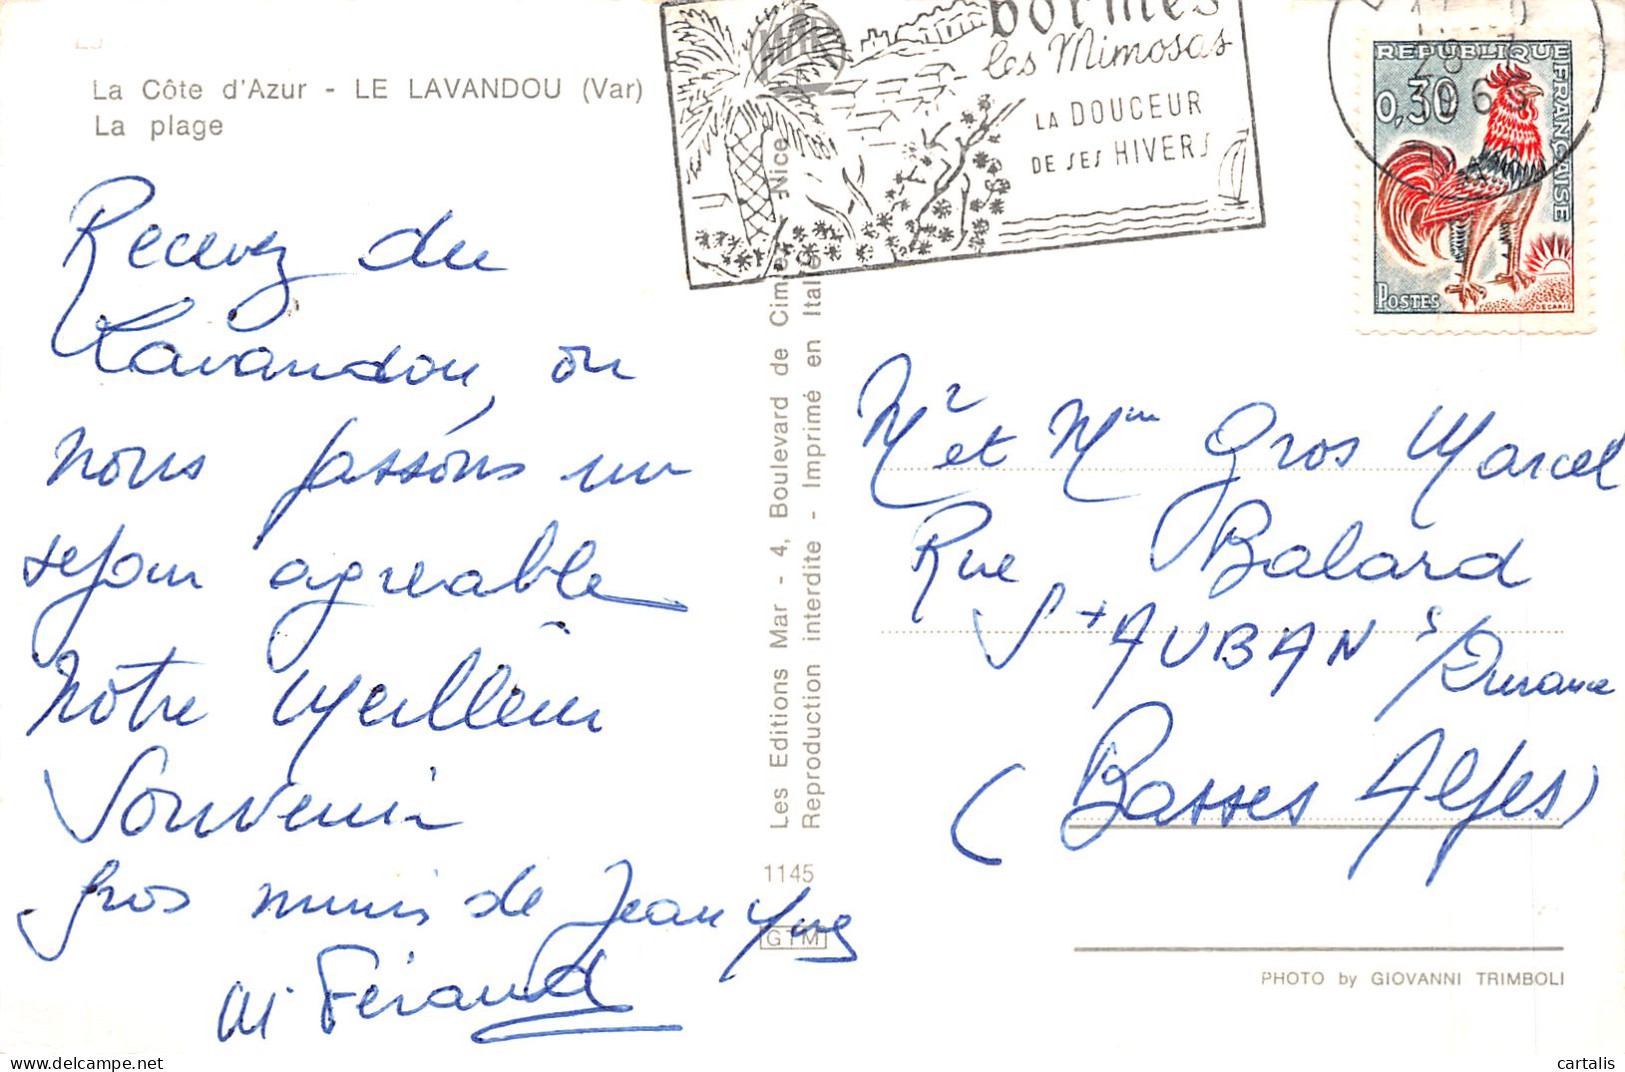 La Côte d'Azur - LE LAVANDOU (Var)
La plage
Recevez du
Lavandou, ou
nous passons un
sejour agreable
Notre meilleur
Souvenir
Gros mimis de Jean Yves
M Féraud
Les Editions Mar - 4, Boulevard de Cimiez, Nice
Reproduction interdite - Imprimé en Italie
1145
GTM
bormes
les Mimosas
LA DOUCEUR
DE SES HIVERS
REPUBLIQUE FRANÇAISE
0,30
POSTES
DECARIS
Mr et Mme Gros Marcel
Rue Balard
St AUBAN s/Durance
(Basses Alpes)
PHOTO by GIOVANNI TRIMBOLI
cartalis